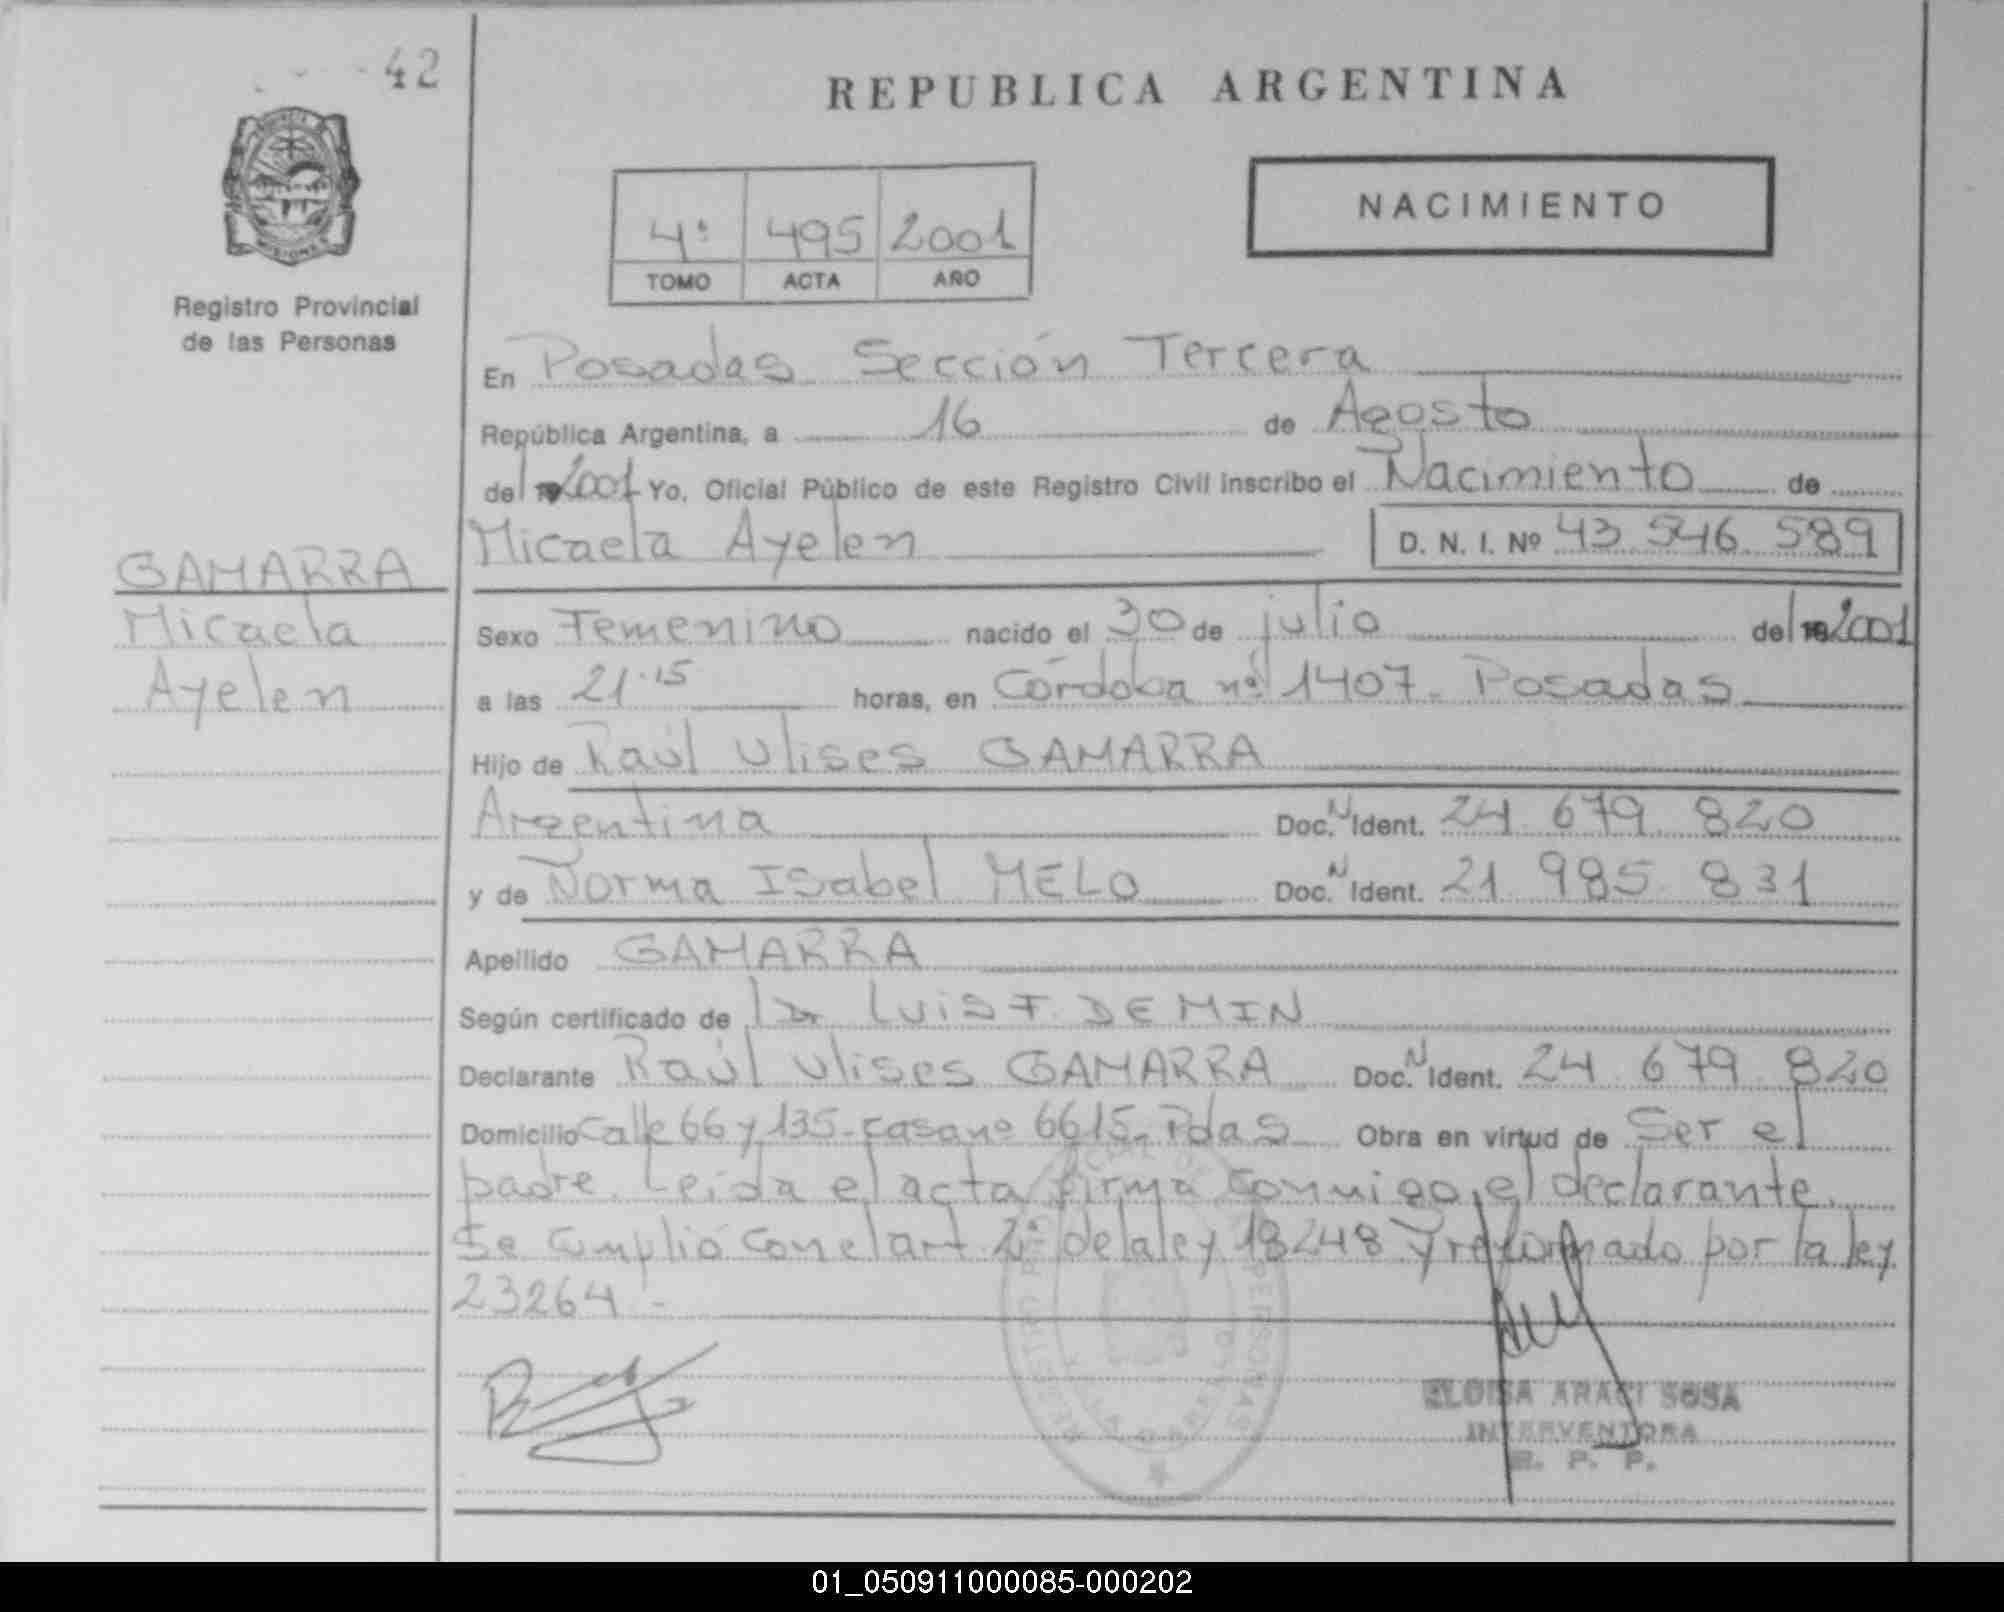 42
REPUBLICA ARGENTINA
NACIMIENTO
4º 495 2001
TOMO ACTA AÑO
Registro Provincial
de las Personas
En Posadas Sección Tercera
República Argentina, a 16 de Agosto
del 2001 Yo, Oficial Público de este Registro Civil inscribo el Nacimiento de
Micaela Ayelen D. N. I. Nº 43 546 589
GAMARRA
Micaela
Ayelen
Sexo Femenino nacido el 30 de julio del 2001
a las 21.15 horas, en Córdoba nº 1407. Posadas
Hijo de Raúl Ulises GAMARRA
Argentina Doc. N Ident. 24 679 820
y de Norma Isabel MELO Doc. N Ident. 21 985 831
Apellido GAMARRA
Según certificado de Dr LUIS F. DEMIN
Declarante Raúl Ulises GAMARRA Doc. N Ident. 24 679 820
Domicilio Calle 66 y 135-casa nº 6615. Pdas Obra en virtud de Ser el
padre. Leída el acta firma conmigo, el declarante.
Se cumplió con el art 2º de la ley 18248 y reformado por la ley
23264 -
ELOISA ARACI SOSA
INTERVENTORA
R. P. P.
01_050911000085-000202